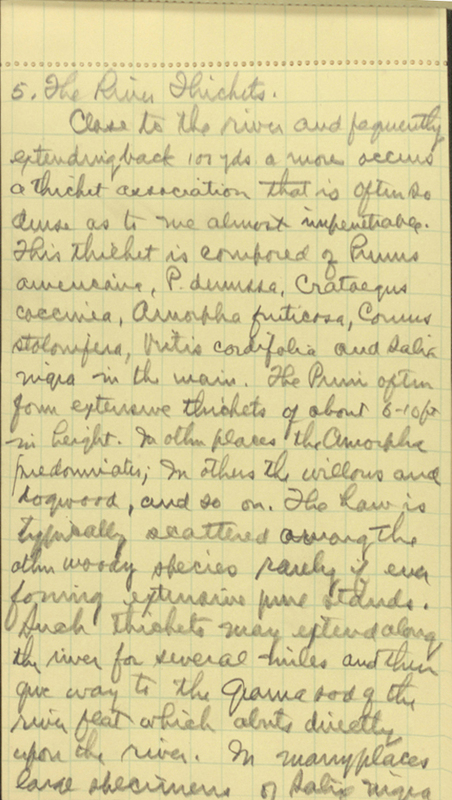 5. The River Thickets.
Close to the river and frequently
extending back 100 yds or more occurs
a thicket association that is often so
dense as to be almost impenetrable.
This thicket is composed of Prunus
americana, P. demissa, Crataegus
coccinea, Amorpha fruticosa, Cornus
stolonifera, Vitis cordifolia and Salix
nigra in the main. The Pruni often
form extensive thickets of about 8-10ft
in height. In other places the Amorpha
predominates; In others the willows and
dogwood, and so on. The haw is
typically scattered among the
other woody species rarely if ever
forming extensive pure stands.
Such thickets may extend along
the river for several miles and then
give way to the Grama sod of the
river flat which abuts directly
upon the river. In many places
large specimens of Salix nigra